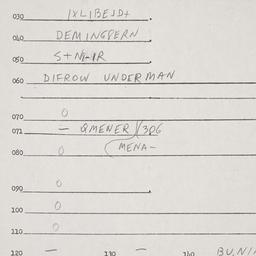 030 1XL1BEJD+
040 DEMINGPERN
050 S+N
060 DIFROW UNDERMAN
070 0
071 — QMENER 3DG
080 0 MENA-
090 0
100 0
110 0
120 — 130 — 160 BU,N/